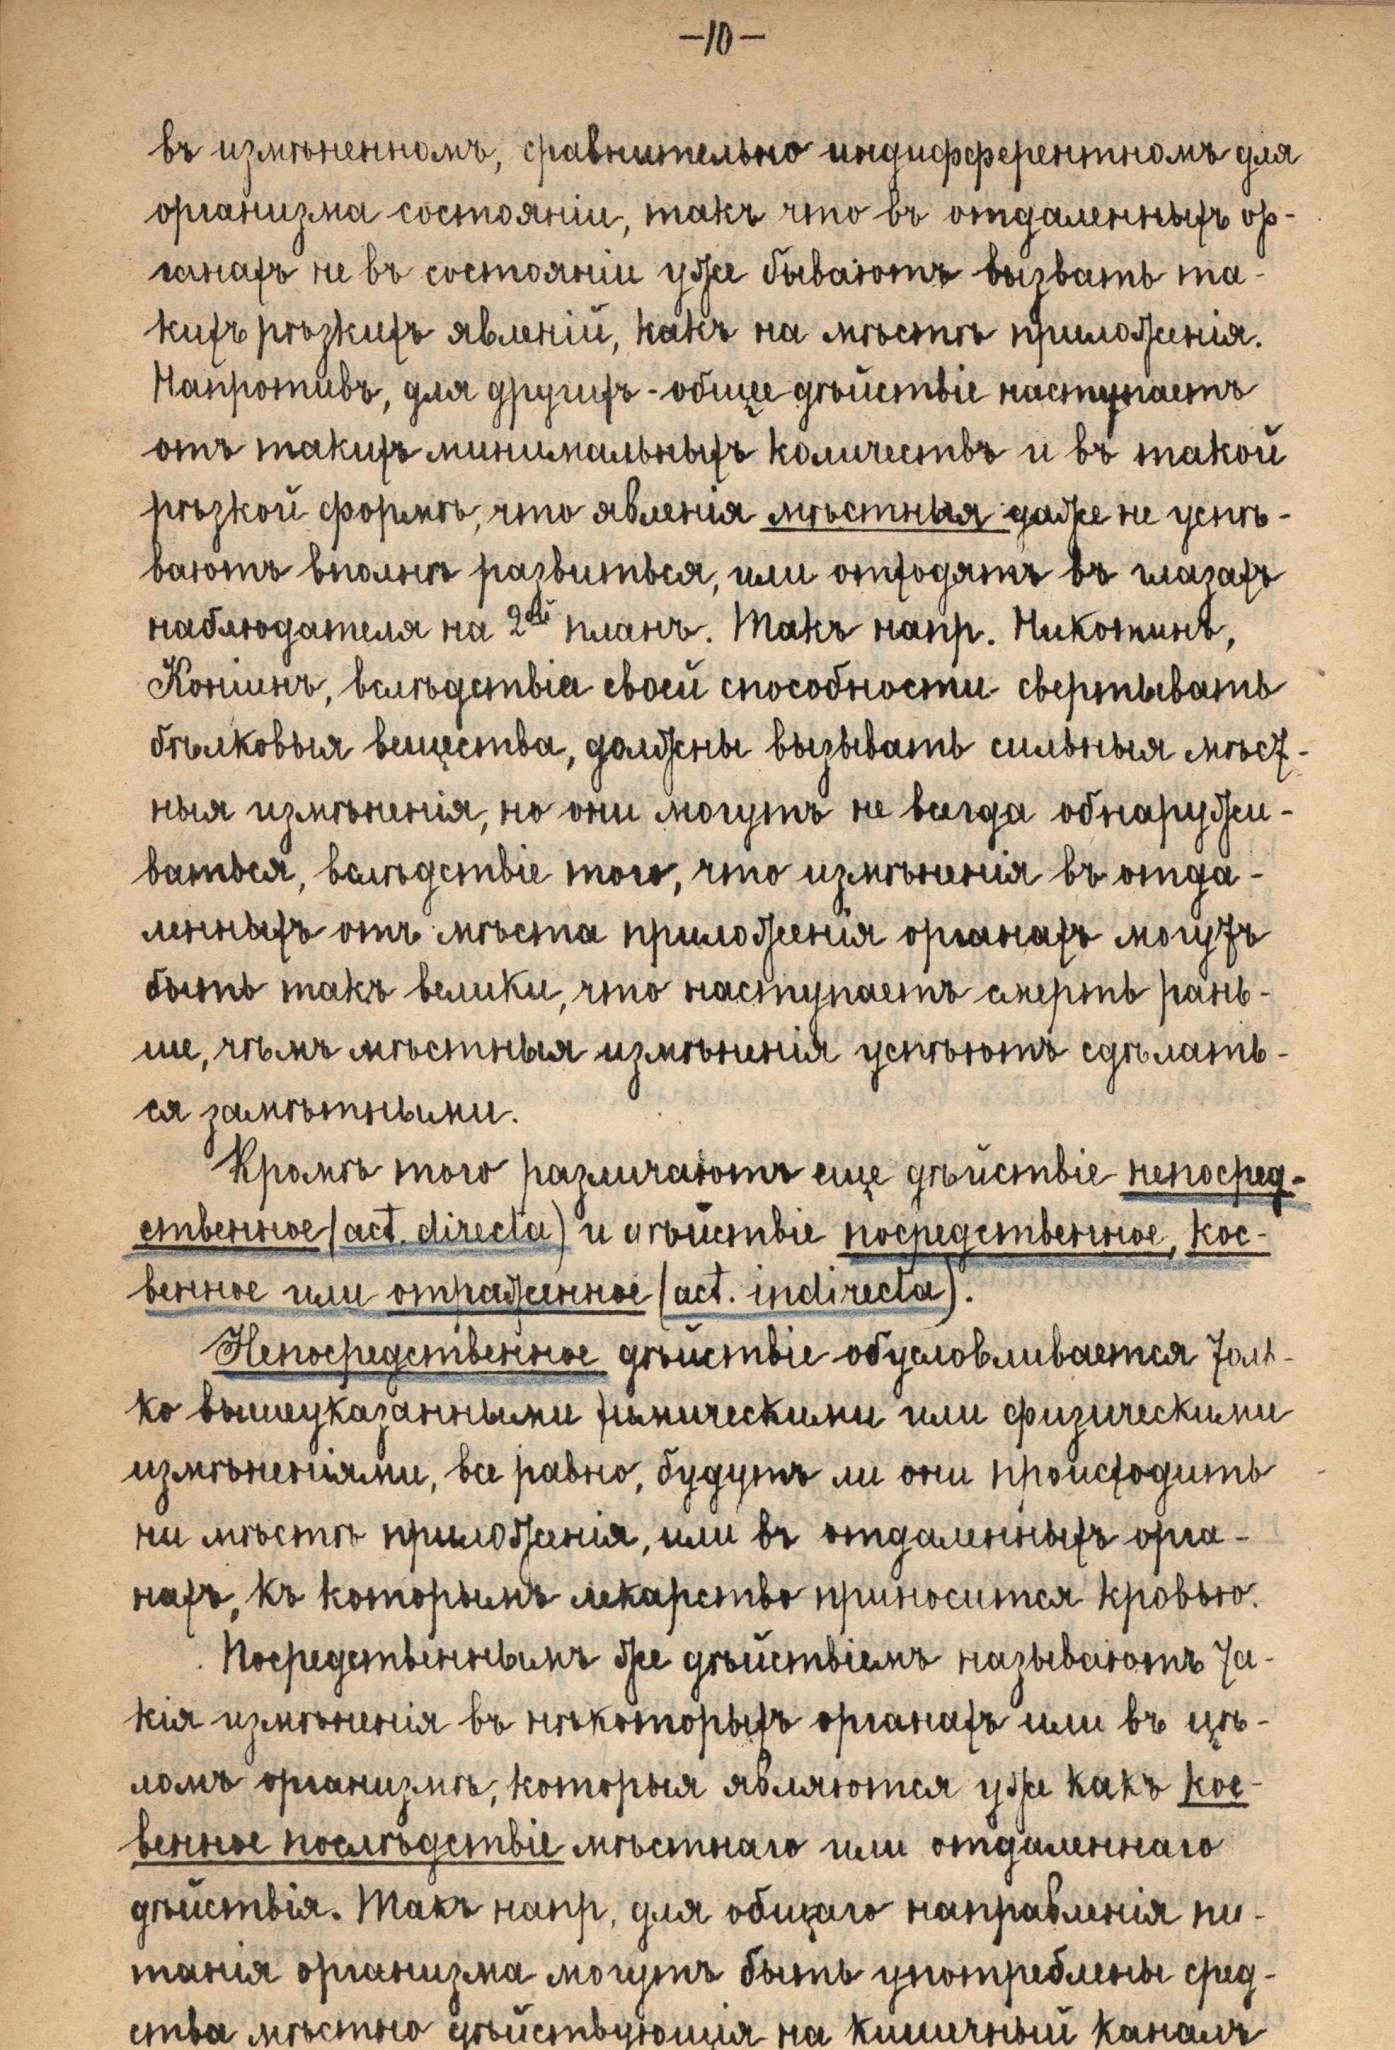 —10—
въ измѣненномъ, сравнительно индифферентномъ для
организма состояніи, такъ что въ отдаленныхъ ор-
ганахъ не въ состояніи уже бываютъ вызвать та-
кихъ рѣзкихъ явленій, какъ на мѣстѣ приложенія.
Напротивъ, для другихъ - общее дѣйствіе наступаетъ
отъ такихъ минимальныхъ количествъ и въ такой
рѣзкой формѣ, что явленія мѣстныя даже не успѣ-
ваютъ вполнѣ развиться, или отходятъ въ глазахъ
наблюдателя на 2ой планъ. Такъ напр. Никотинъ,
Коніинъ, вслѣдствіа своей способности свертывать
бѣлковыя вещества, должны вызывать сильныя мѣст-
ныя измѣненія, но они могутъ не всегда обнаружи-
ваться, вслѣдствіе того, что измѣненія въ отда-
ленныхъ отъ мѣста приложенія органахъ могутъ
быть такъ велики, что наступаетъ смерть рань-
ше, чѣмъ мѣстныя измѣненія успѣютъ сдѣлать-
ся замѣтными.
Кромѣ того различаютъ еще дѣйствіе непосред-
ственное (act. directa) и дѣйствіе посредственное, кос-
венное или отраженное (act. indirecta).
Непосредственное дѣйствіе обусловливается толь-
ко вышеуказанными химическими или физическими
измѣненіями, все равно, будутъ ли они происходить
ни мѣстѣ приложенія, или въ отдаленныхъ орга-
нахъ, къ которымъ лекарство приносится кровью.
Посредственнымъ же дѣйствіемъ называютъ та-
кія измѣненія въ нѣкоторыхъ органахъ или въ цѣ-
ломъ организмѣ, которыя являются уже какъ кос-
венное послѣдствіе мѣстнаго или отдаленнаго
дѣйствія. Такъ напр, для общаго направленія пи-
танія организма могутъ быть употреблены сред-
ства мѣстно дѣйствующія на кишечный каналъ